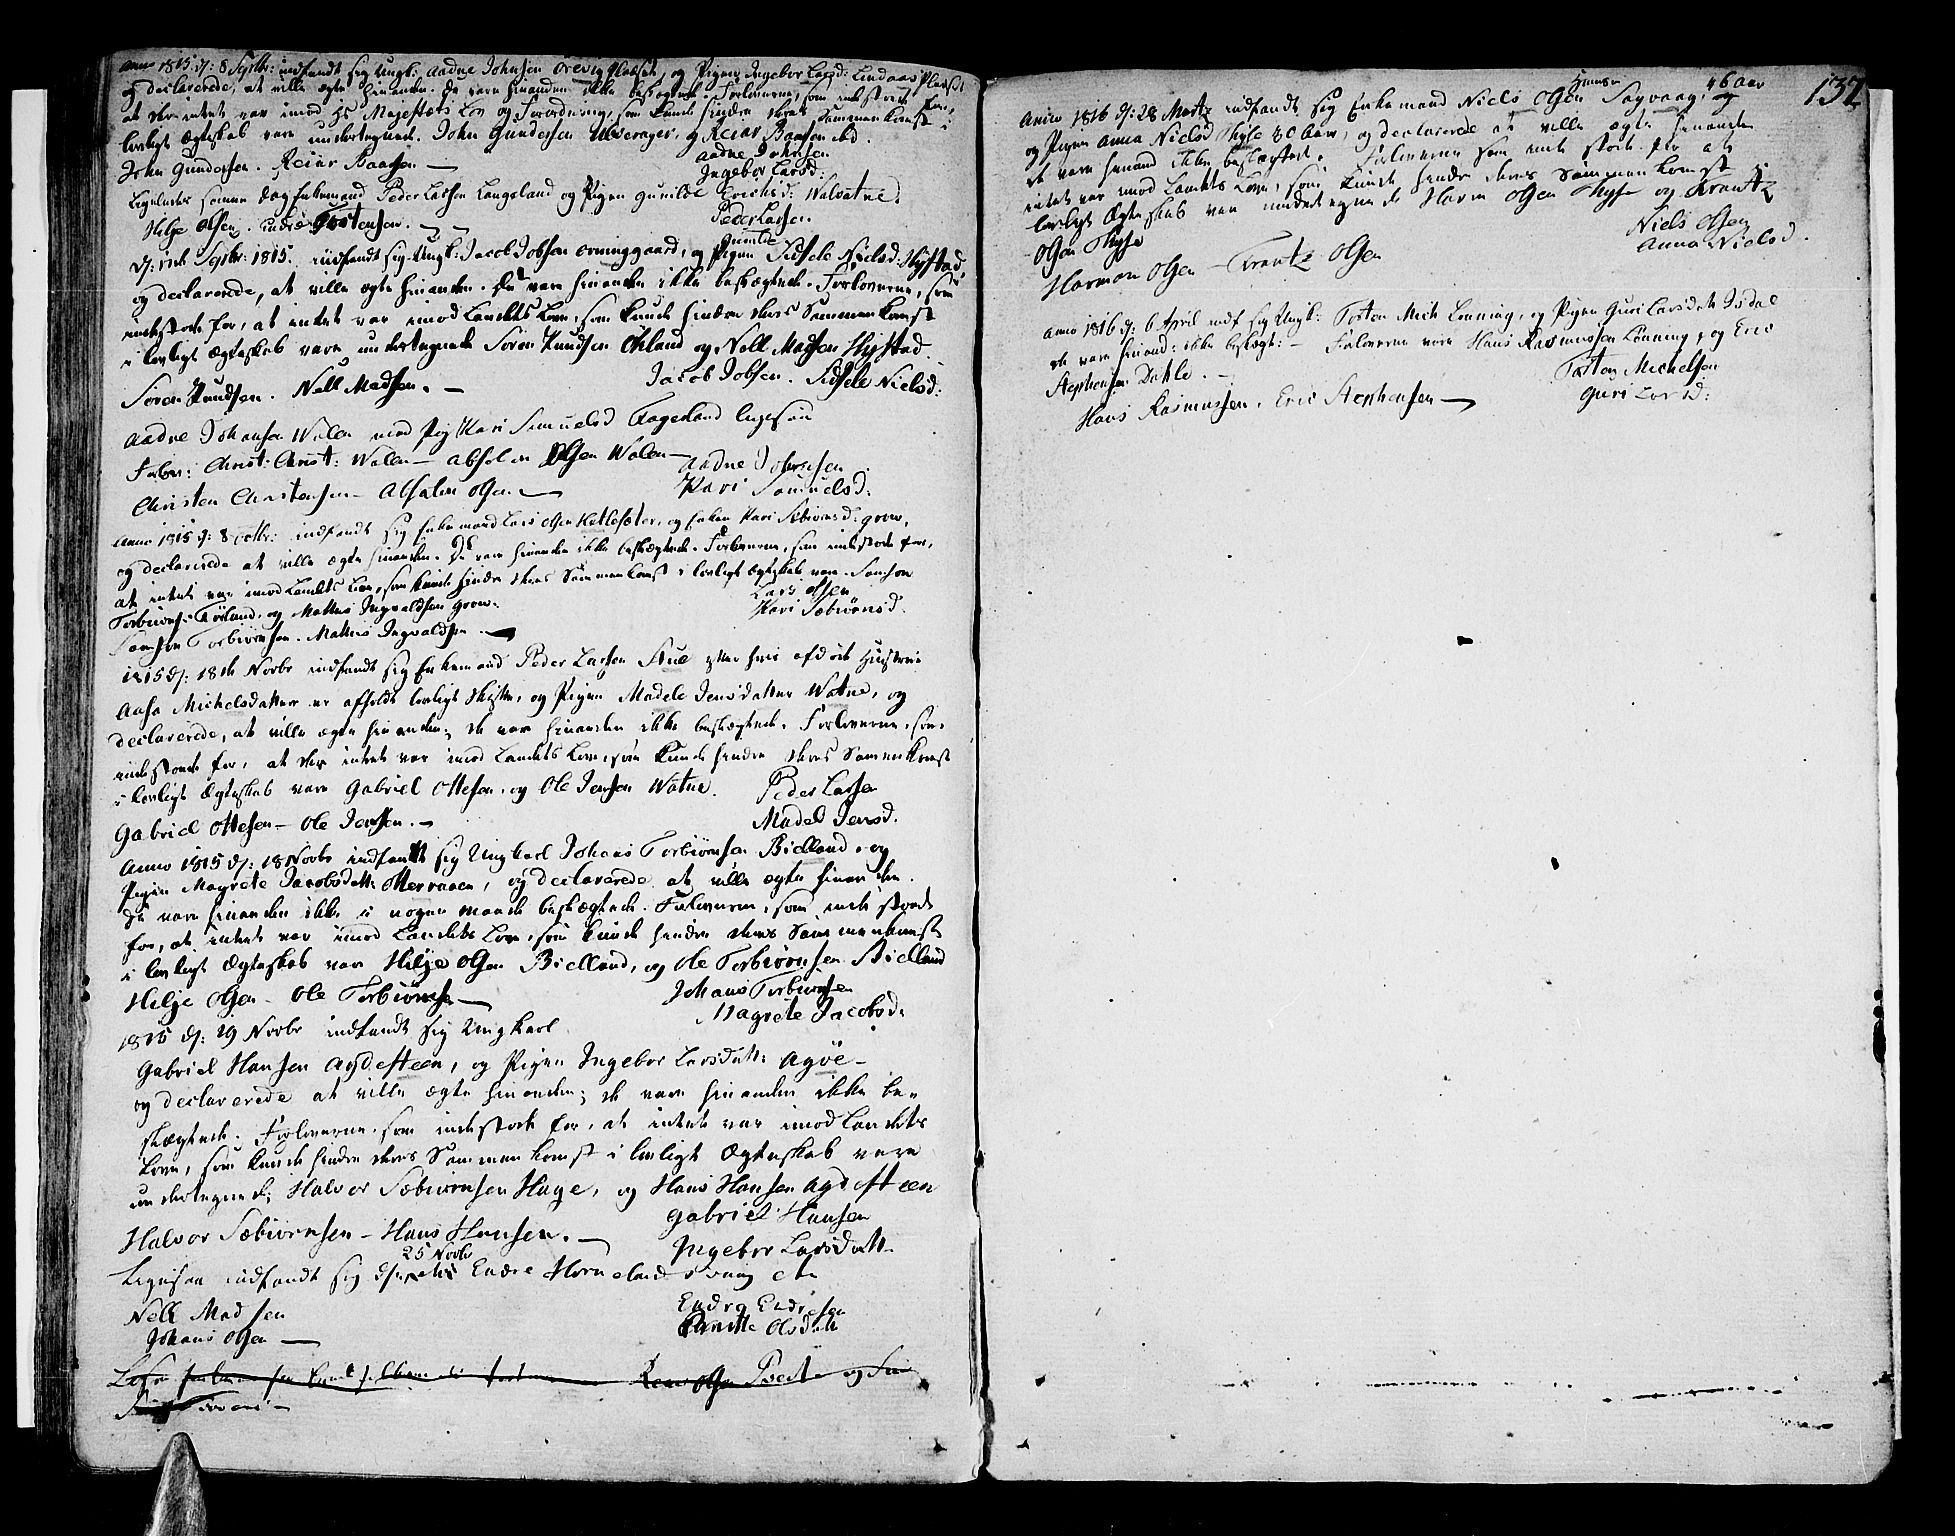 Anno 1815 d: 8 Septbr: indfandt sig Ungk: Aadne Johnsen Orevig Pladset, og Pigen Ingebor Larsd: Lindaas Pladset
og declarerede, at ville ægte hinanden. De vare hinanden ikke beskægtede. Forloverne, som indestode for,
at der intet var imod Hs Majestæts Lov og Forordning, som kunde hindre deres Sammenkomst i
lovligt Ægteskab vare undertegnede. John Gundersen og Reiar Baarsen
John Gundersen. Reiar Baarsen —
Aadne Johnsen
Ingebor Larsd:
Ligeledes samme dag Enkemand Peder Larsen Langeland og Pigen Gunilde Erichsd: Walvatne.
Helje Olsen. Endre Tostensen. —
Peder Larsen
Gunilde
d: Septbr: 1815. indfandt sig Ungk: Jacob Jobsen Orninggaard, og Pigen Sidsele Nielsd: Hystad
og declarerede, at ville ægte hinanden. De vare hinanden ikke beskægtede. Forloverne, som
indestode for, at intet var imod Landets Love, som kunde hindre deres Sammenkomst
i lovligt Ægteskab vare undertegnede Sören Knudsen Økland og Nell Madsen Hystad.
Sören Knudsen. Nell Madsen. —
Jacob Jobsen. Sidsele Nielsd:
Aadne Johansen Wolen med Pig Kari Samuelsd Fageland ligesaa
Forlov: Christ: Christ: Wolen — Absolon Olsen Wolen —
Christen Christensen — Absalon Olsen —
Aadne Johansen
Kari Samuelsd:
Anno 1815 d: 8 Octbr: indfandt sig Enkemand Lars Olsen Hetlesæter, og Enken Kari Sæbiörnsd: Grov,
og declarerede at ville ægte hinanden. De vare hinanden ikke beskægtede. Forloverne, som indestode for,
at intet var imod Landets Love, som kunde hindre deres Sammenkomst i lovligt Ægteskab vare Samson
Torbiörns: Tørland. og Mathis Ingvaldsen Grov.
Samson Torbiörnsen. Mathis Ingvaldsen. —
Lars Olsen
Kari Sæbiörnsd.
1815 d: 18de Novbr indfandt sig Enkemand Peder Larsen Stue efter hvis afdöde Hustrue
Aasa Michelsdatter er afholdt lovligt Skifte, og Pigen Madele Jensdatter Watne, og
declarerede, at ville ægte hinanden; de vare hinanden ikke beskægtede. Forloverne, som
indestode for, at der intet var imod Landets Love, som kunde hindre deres Sammenkomst
i lovligt Ægteskab vare Gabriel Ottesen, og Ole Jensen Watne.
Gabriel Ottesen — Ole Jensen. —
Peder Larsen
Madel Jensd.
Anno 1815 d: 18 Novbr indfandt sig Ungkarl Johans Torbiörnsen Bielland, og
Pigen Magrete Jacobsdatt: Ottervaaen, og declarerede at ville ægte hinanden.
De vare hinanden ikke i nogen maade beskægtede. Forloverne, som indestode
for, at intet var imod Landets Love, som kunde hindre deres Sammenkomst
i lovligt Ægteskab var Hilje Olsen Bielland, og Ole Torbiörnsen Bielland
Hilje Olsen — Ole Torbiörnsen —
Johans Torbiörnsen
Magrete Jacobsd:
1815 d: 19 Novbr indfandt sig Ungkarl
Gabriel Hansen Agdesteen, og Pigen Ingebor Larsdatt: Agöe —
og declarerede at ville ægte hinanden; de vare hinanden ikke be-
skægtede. Forloverne, som indestode for, at intet var imod Landets
Love, som kunde hindre deres Sammenkomst i lovligt Ægteskab vare
undertegnede; Halvor Sæbiörnsen Huge, og Hans Hansen Agdesteen
Halvor Sæbiörnsen — Hans Hansen. —
Gabriel Hansen
Ingebor Larsdatt.
25 Novbr
Ligesaa indfandt sig Endre Horneland
Nell Madsen
Johans Olsen —
Endre Endresen
Olsdatt
Olsen og

137
46 Aar
Anno 1816 d: 28 Martz indfandt sig Enkemand Niels Olsen Sagvaag,
og Pigen Anna Nielsd Thyse 30 Aar, og declarerede at ville ægte hinanden
de vare hinand ikke beskægtede. Forloverne som indestode for at
intet var imod Landets Love, som kunde hindre deres Sammenkomst i
lovligt Ægteskab var undertegnede Harmon Olsen Thyse og Krantz
Olsen Thyse
Harmon Olsen — Krantz Olsen
Niels Olsen
Anna Nielsd.
Anno 1816 d: 6 April indf sig Ungk: Tosten Mich Lönning, og Pigen Guri Larsdatt Isdal
de vare hinand: ikke beskægt: — Forloverne vare Hans Rasmussen Lönning, og Eric
Stephensen Dahle. —
Hans Rasmussen, Eric Stephensen —
Tosten Michelsen
Guri Larsd: